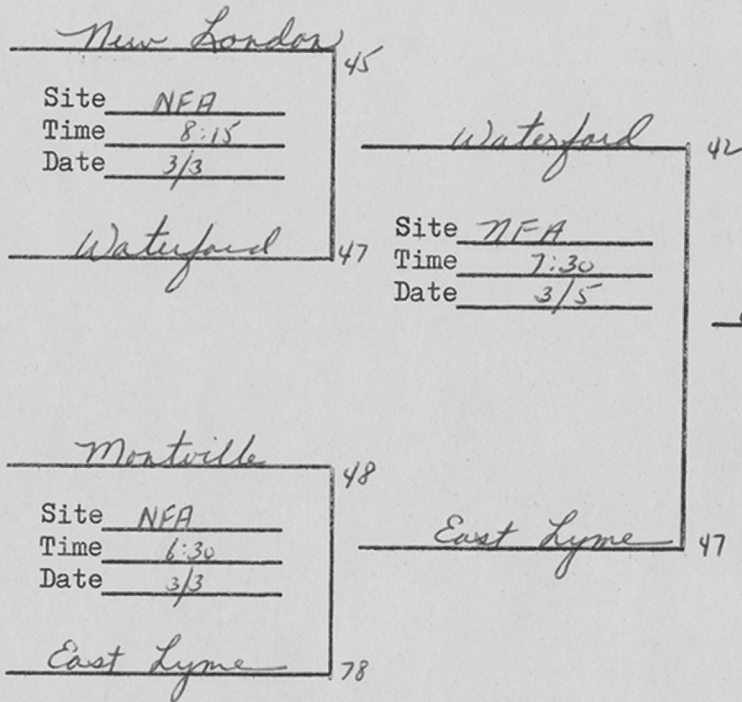 New London
45
Site NFA
Time 8:15
Date 3/3
Waterford
47
Montville
48
Site NFA
Time 6:30
Date 3/3
East Lyme
78
Waterford
42
Site NFA
Time 7:30
Date 3/5
East Lyme
47